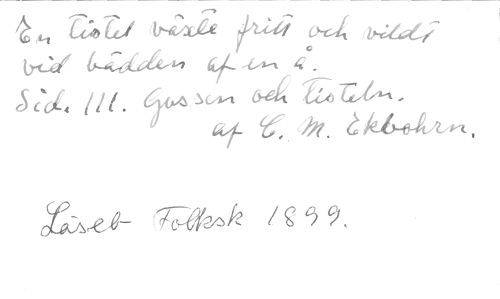 En tistel växte fritt och vildt
vid bädden af en å.
Sid. 111. Gossen och tisteln.
af C. M. Ekbohrn.
Läseb Folksk 1899.